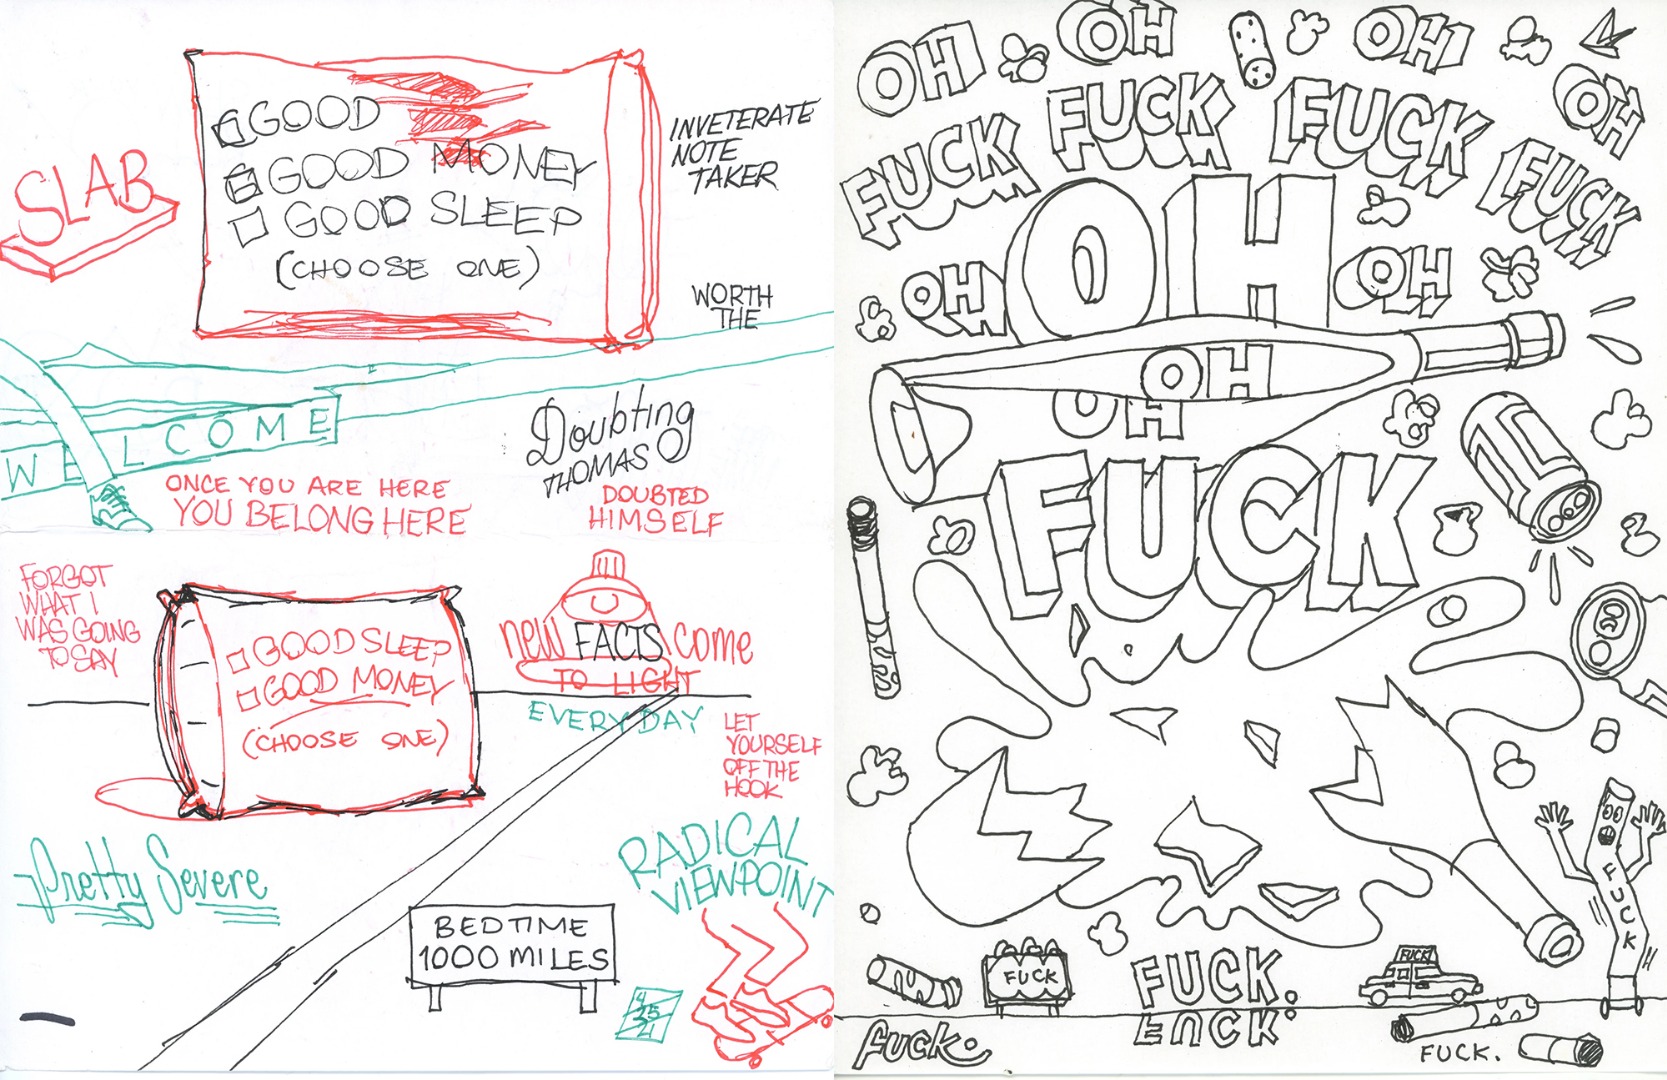 GOOD
GOOD MONEY
GOOD SLEEP
(CHOOSE ONE)
SLAB
INVETERATE
NOTE
TAKER
WORTH
THE
WELCOME
Doubting
THOMAS
DOUBTED
HIMSELF
ONCE YOU ARE HERE
YOU BELONG HERE
FORGOT
WHAT I
WAS GOING
TO SAY
GOOD SLEEP
GOOD MONEY
(CHOOSE ONE)
new FACTS come
TO LIGHT
EVERY DAY
LET
YOURSELF
OFF THE
HOOK
Pretty Severe
RADICAL
VIEWPOINT
BEDTIME
1000 MILES
4
25
21
OH OH OH OH
FUCK FUCK FUCK FUCK
OH
OH OH
OH
OH
FUCK
FUCK
FUCK
FUCK.
FUCK
FUCK.
fuck.
FUCK.